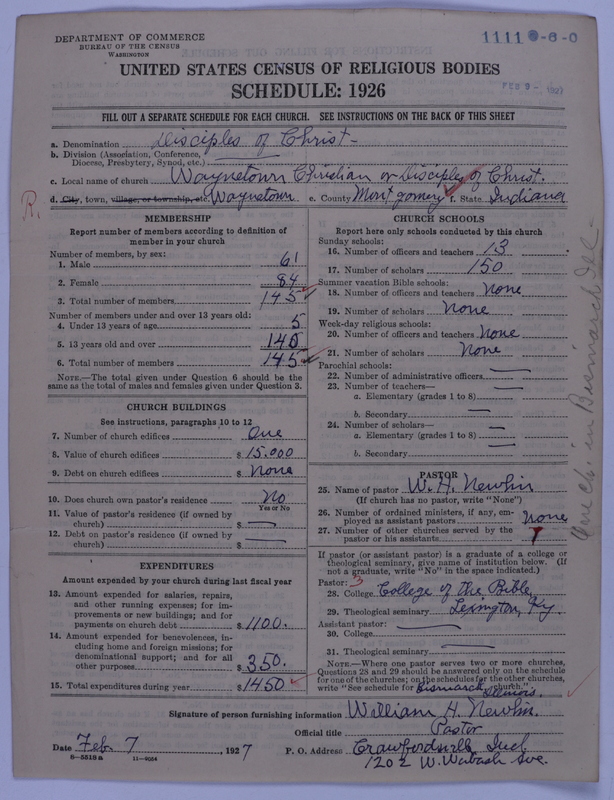 DEPARTMENT OF COMMERCE
BUREAU OF THE CENSUS
WASHINGTON
1111 -6-0
UNITED STATES CENSUS OF RELIGIOUS BODIES
SCHEDULE: 1926
FEB 9 - 1927
FILL OUT A SEPARATE SCHEDULE FOR EACH CHURCH. SEE INSTRUCTIONS ON THE BACK OF THIS SHEET
a. Denomination Disciples of Christ
b. Division (Association, Conference, Diocese, Presbytery, Synod, etc.)
c. Local name of church Waynetown Christian or Disciples of Christ.
R. d. City, town, village, or township, etc. Waynetown e. County Montgomery f. State Indiana
MEMBERSHIP
Report number of members according to definition of
member in your church
Number of members, by sex:
1. Male 61
2. Female 84
3. Total number of members 145
Number of members under and over 13 years old:
4. Under 13 years of age 5
5. 13 years old and over 140
6. Total number of members 145
NOTE.—The total given under Question 6 should be the
same as the total of males and females given under Question 3.
CHURCH BUILDINGS
See instructions, paragraphs 10 to 12
7. Number of church edifices One
8. Value of church edifices $ 15.000
9. Debt on church edifices $ None
10. Does church own pastor's residence No
Yes or No
11. Value of pastor's residence (if owned by
church) $ —
12. Debt on pastor's residence (if owned by
church) $ —
EXPENDITURES
Amount expended by your church during last fiscal year
13. Amount expended for salaries, repairs,
and other running expenses; for im-
provements or new buildings; and for
payments on church debt $ 1100.
14. Amount expended for benevolences, in-
cluding home and foreign missions; for
denominational support; and for all
other purposes $ 350.
15. Total expenditures during year $ 1450
CHURCH SCHOOLS
Report here only schools conducted by this church
Sunday schools:
16. Number of officers and teachers 13
17. Number of scholars 150
Summer vacation Bible schools:
18. Number of officers and teachers None
19. Number of scholars None
Week-day religious schools:
20. Number of officers and teachers None
21. Number of scholars None
Parochial schools:
22. Number of administrative officers —
23. Number of teachers—
a. Elementary (grades 1 to 8) —
b. Secondary —
24. Number of scholars—
a. Elementary (grades 1 to 8) —
b. Secondary —
PASTOR
25. Name of pastor W. H. Newlin
(If church has no pastor, write "None")
26. Number of ordained ministers, if any, em-
ployed as assistant pastors None
27. Number of other churches served by the
pastor or his assistants 1
If pastor (or assistant pastor) is a graduate of a college or
theological seminary, give name of institution below. (If
not a graduate, write "No" in the space indicated.)
Pastor: 3
28. College College of the Bible
29. Theological seminary Lexington, Ky.
Assistant pastor: —
30. College —
31. Theological seminary —
NOTE.—Where one pastor serves two or more churches,
Questions 28 and 29 should be answered only on the schedule
for one of the churches; on the schedules for the other churches,
write "See schedule for Bismarck Illinois church."
One Ch. in Bismarck Ill—
Signature of person furnishing information William H. Newlin.
Official title Pastor
Date Feb. 7, 1927 P. O. Address Crawfordsville Ind.
1202 W. Wabash Ave.
8—5518 a 11—9054